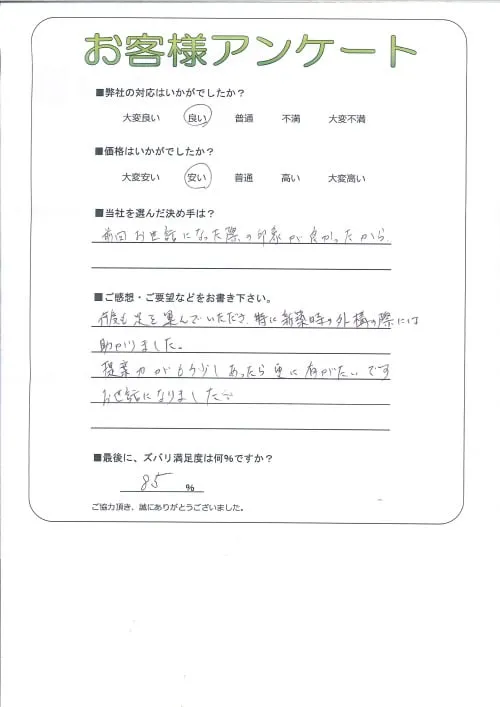 お客様アンケート
■弊社の対応はいかがでしたか？
大変良い 良い 普通 不満 大変不満
■価格はいかがでしたか？
大変安い 安い 普通 高い 大変高い
■当社を選んだ決め手は？
前回お世話になった際の印象が良かったから
■ご感想・ご要望などをお書き下さい。
何度も足を運んでいただき、特に新築時の外構の際には
助かりました。
提案力がもう少しあったら更に有がたいです
お世話になりました
■最後に、ズバリ満足度は何％ですか？
85 %
ご協力頂き、誠にありがとうございました。